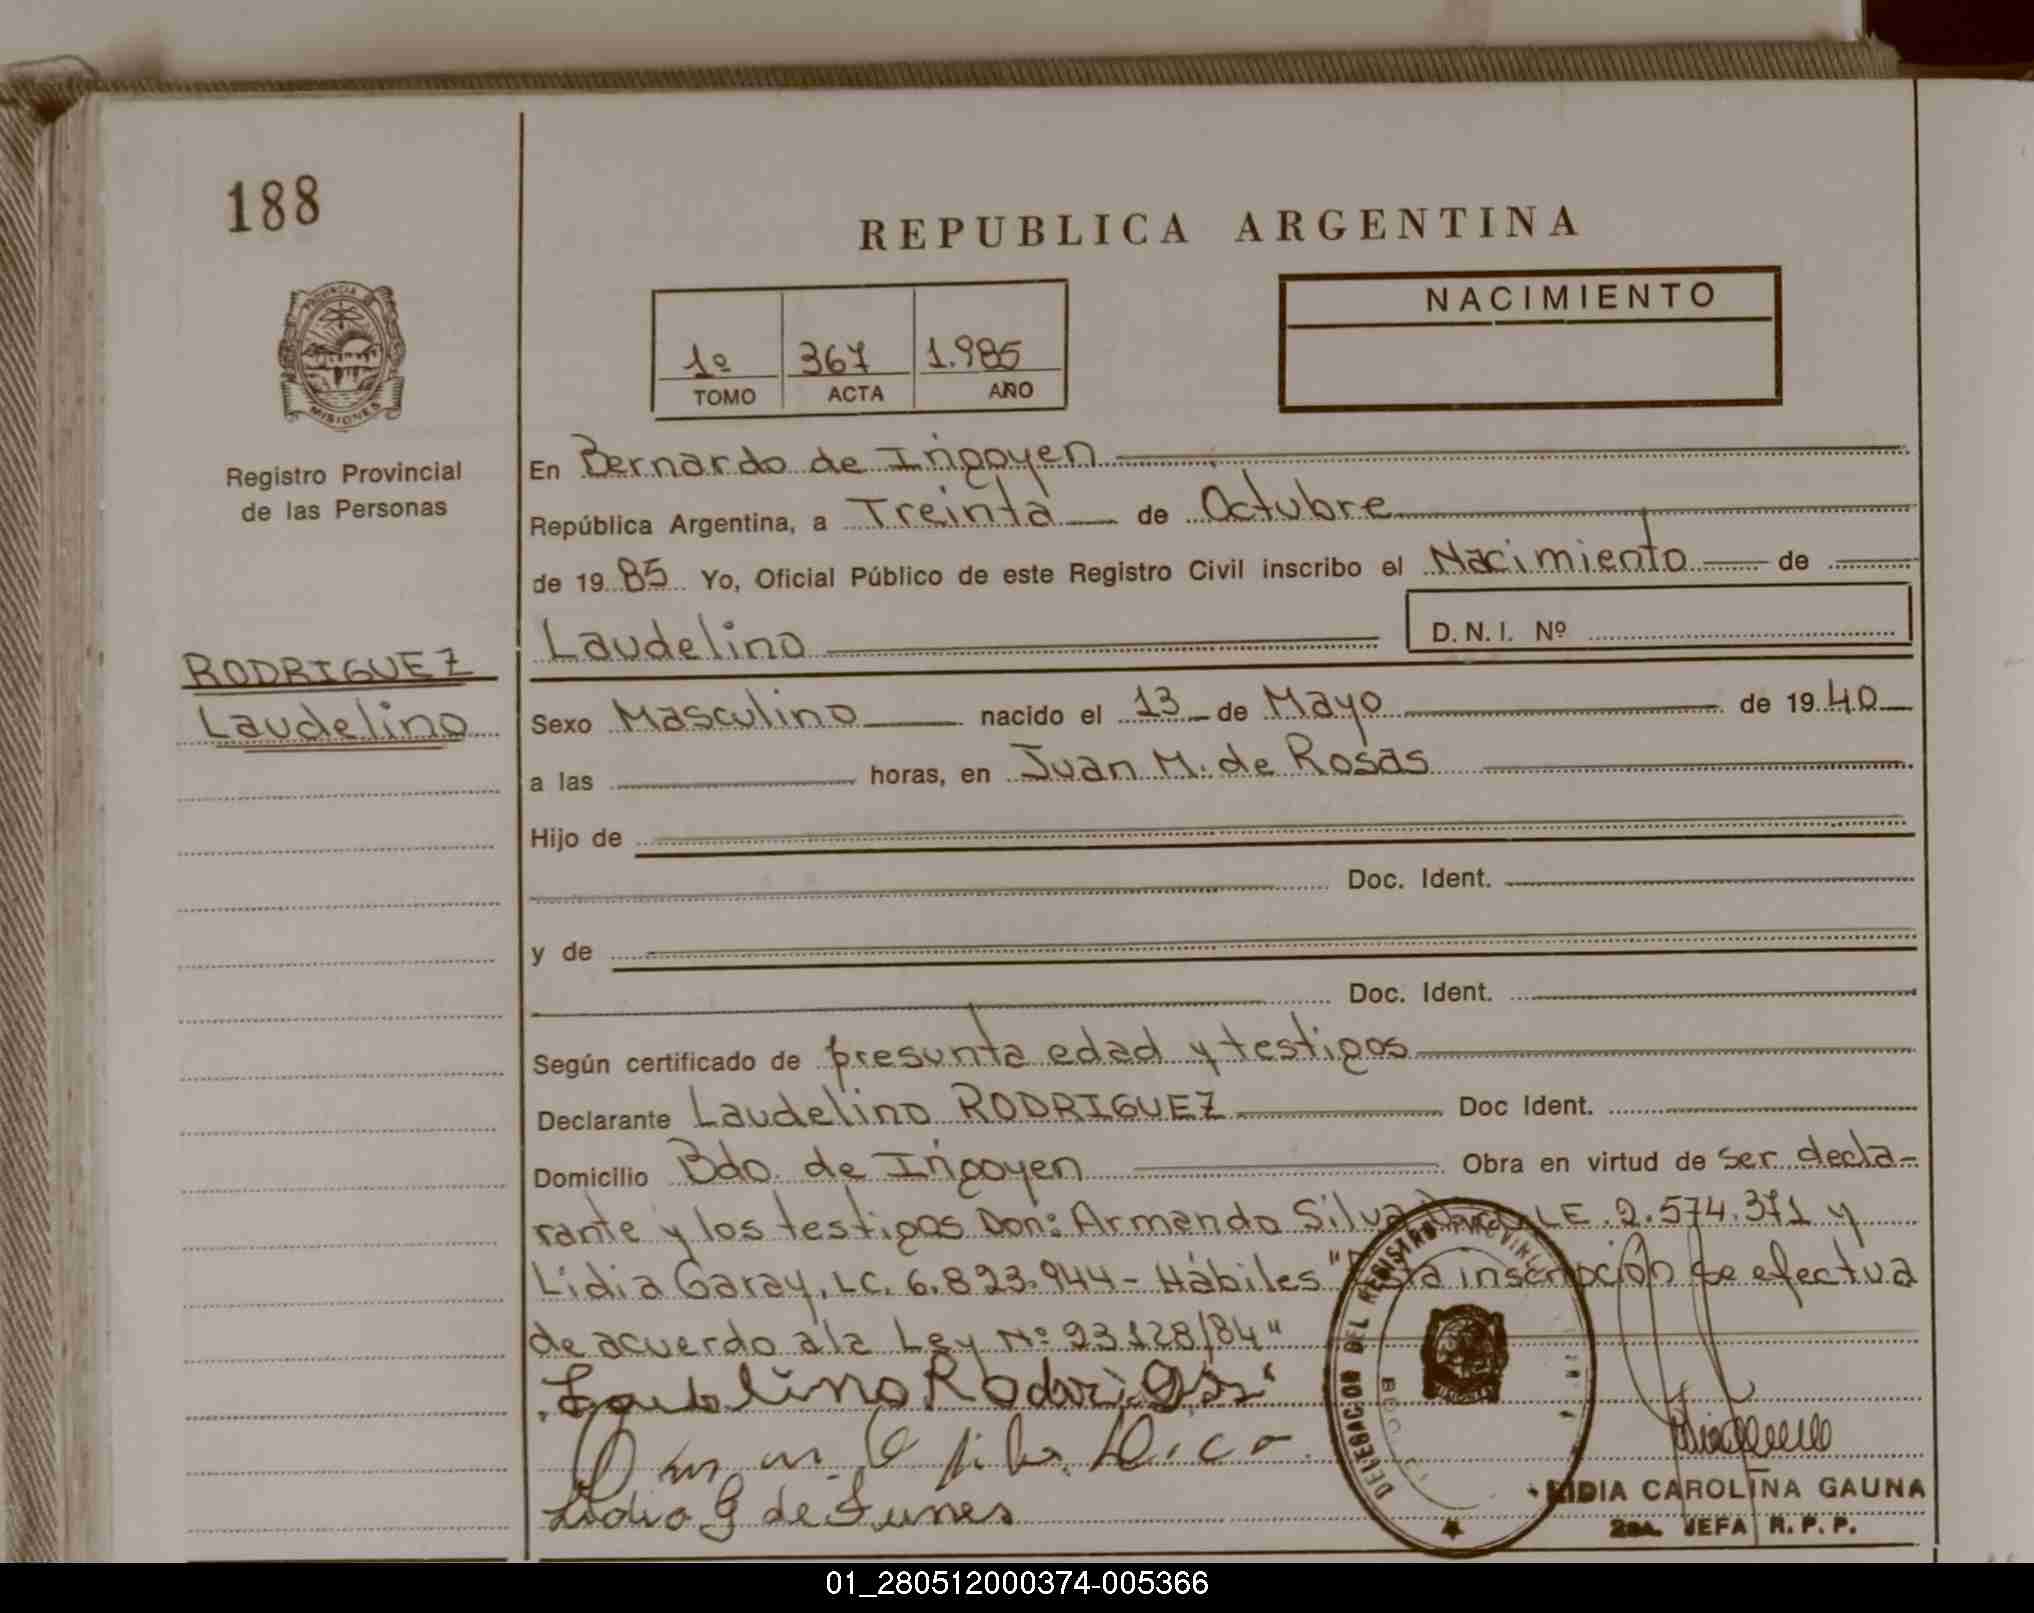 188
REPUBLICA ARGENTINA
PROVINCIA DE
MISIONES
1º 367 1.985
TOMO ACTA AÑO
NACIMIENTO
Registro Provincial
de las Personas
RODRIGUEZ
Laudelino
En Bernardo de Irigoyen
República Argentina, a Treinta de Octubre
de 19 85 Yo, Oficial Público de este Registro Civil inscribo el Nacimiento de
Laudelino D.N.I. Nº
Sexo Masculino nacido el 13 de Mayo de 19 40
a las horas, en Juan M. de Rosas
Hijo de
Doc. Ident.
y de
Doc. Ident.
Según certificado de presunta edad y testigos
Declarante Laudelino RODRIGUEZ Doc Ident.
Domicilio Bdo. de Irigoyen Obra en virtud de ser decla-
rante y los testigos Don: Armando Silva LE. 2.574.371 y
Lidia Garay, LC. 6.823.944 - Hábiles "Esta inscripción se efectua
de acuerdo a la Ley Nº 23128/84"
Lidia G de Funes
DELEGACION DEL REGISTRO PROVINCIAL
LIDIA CAROLINA GAUNA
2da. JEFA R.P.P.
01_280512000374-005366